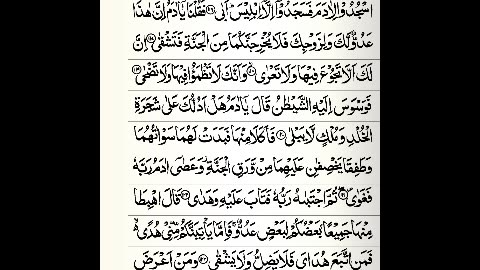 اسْجُدُوْا لِاٰدَمَ فَسَجَدُوْٓا اِلَّآ اِبْلِيْسَ ؕ اَبٰى ﴿۱۱۶﴾ فَقُلْنَا يٰٓاٰدَمُ اِنَّ هٰذَا
عَدُوٌّ لَّكَ وَلِزَوْجِكَ فَلَا يُخْرِجَنَّكُمَا مِنَ الْجَنَّةِ فَتَشْقٰى ﴿۱۱۷﴾ اِنَّ
لَكَ اَلَّا تَجُوْعَ فِيْهَا وَلَا تَعْرٰى ﴿۱۱۸﴾ وَاَنَّكَ لَا تَظْمَؤُا فِيْهَا وَلَا تَضْحٰى ﴿۱۱۹﴾
فَوَسْوَسَ اِلَيْهِ الشَّيْطٰنُ قَالَ يٰٓاٰدَمُ هَلْ اَدُلُّكَ عَلٰى شَجَرَةِ
الْخُلْدِ وَمُلْكٍ لَّا يَبْلٰى ﴿۱۲۰﴾ فَاَكَلَا مِنْهَا فَبَدَتْ لَهُمَا سَوْاٰتُهُمَا
وَطَفِقَا يَخْصِفٰنِ عَلَيْهِمَا مِنْ وَّرَقِ الْجَنَّةِ ؗ وَعَصٰٓى اٰدَمُ رَبَّهٗ
فَغَوٰى ﴿۱۲۱﴾ ثُمَّ اجْتَبٰهُ رَبُّهٗ فَتَابَ عَلَيْهِ وَهَدٰى ﴿۱۲۲﴾ قَالَ اهْبِطَا
مِنْهَا جَمِيْعًۢا بَعْضُكُمْ لِبَعْضٍ عَدُوٌّ ۚ فَاِمَّا يَاْتِيَنَّكُمْ مِّنِّيْ هُدًى ۙ
فَمَنِ اتَّبَعَ هُدَايَ فَلَا يَضِلُّ وَلَا يَشْقٰى ﴿۱۲۳﴾ وَمَنْ اَعْرَضَ